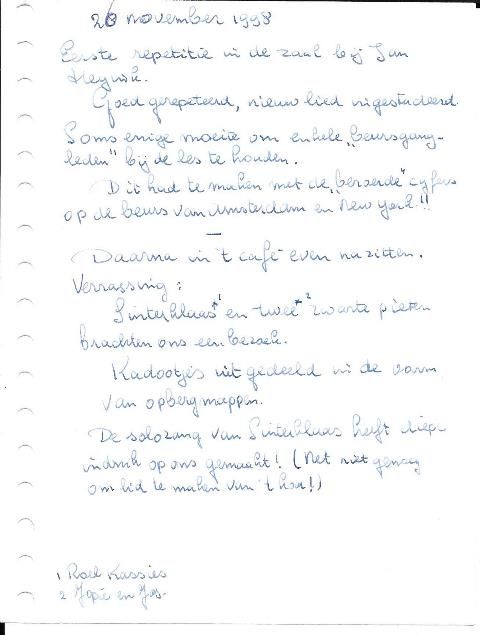 26 november 1998
Eerste repetitie in de zaal bij Jan
Heynik.
Goed gerepeteerd, nieuw lied ingestudeerd.
Soms enige moeite om enkele "beursgang-
leden" bij de les te houden.
Dit had te maken met de "beroerde" cyfers
op de beurs van Amsterdam en New York!!
—
Daarna in 't café even nazitten.
Verrassing:
Sinterklaas *1 en twee *2 zwarte pieten
brachten ons een bezoek.
Kadootjes uitgedeeld in de vorm
van opbergmappen.
De solozang van Sinterklaas heeft diepe
indruk op ons gemaakt! (Net niet genoeg
om lid te maken van 't koor!)
1 Roel Kassies
2 Jopie en Jos.